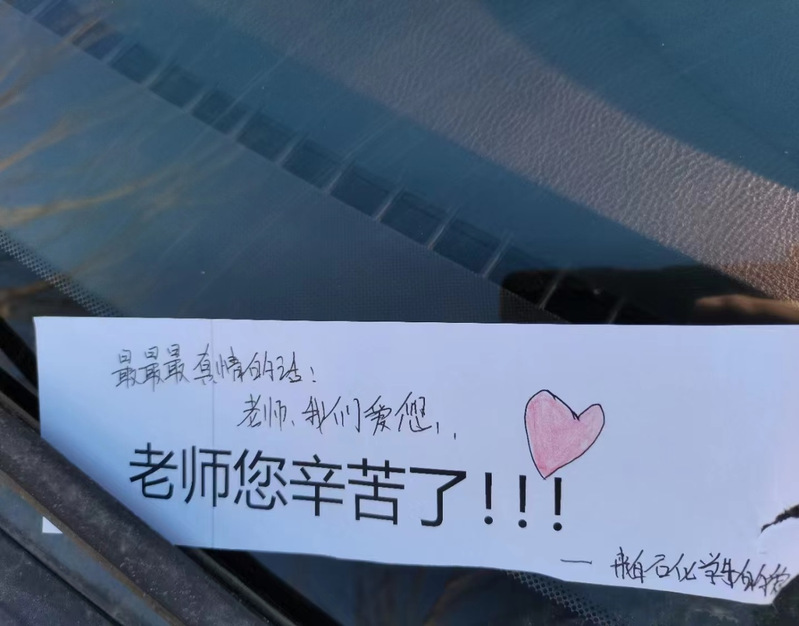 最最最真情的话：
老师、我们爱您！！
老师您辛苦了！！！
— 来自石化学生的爱